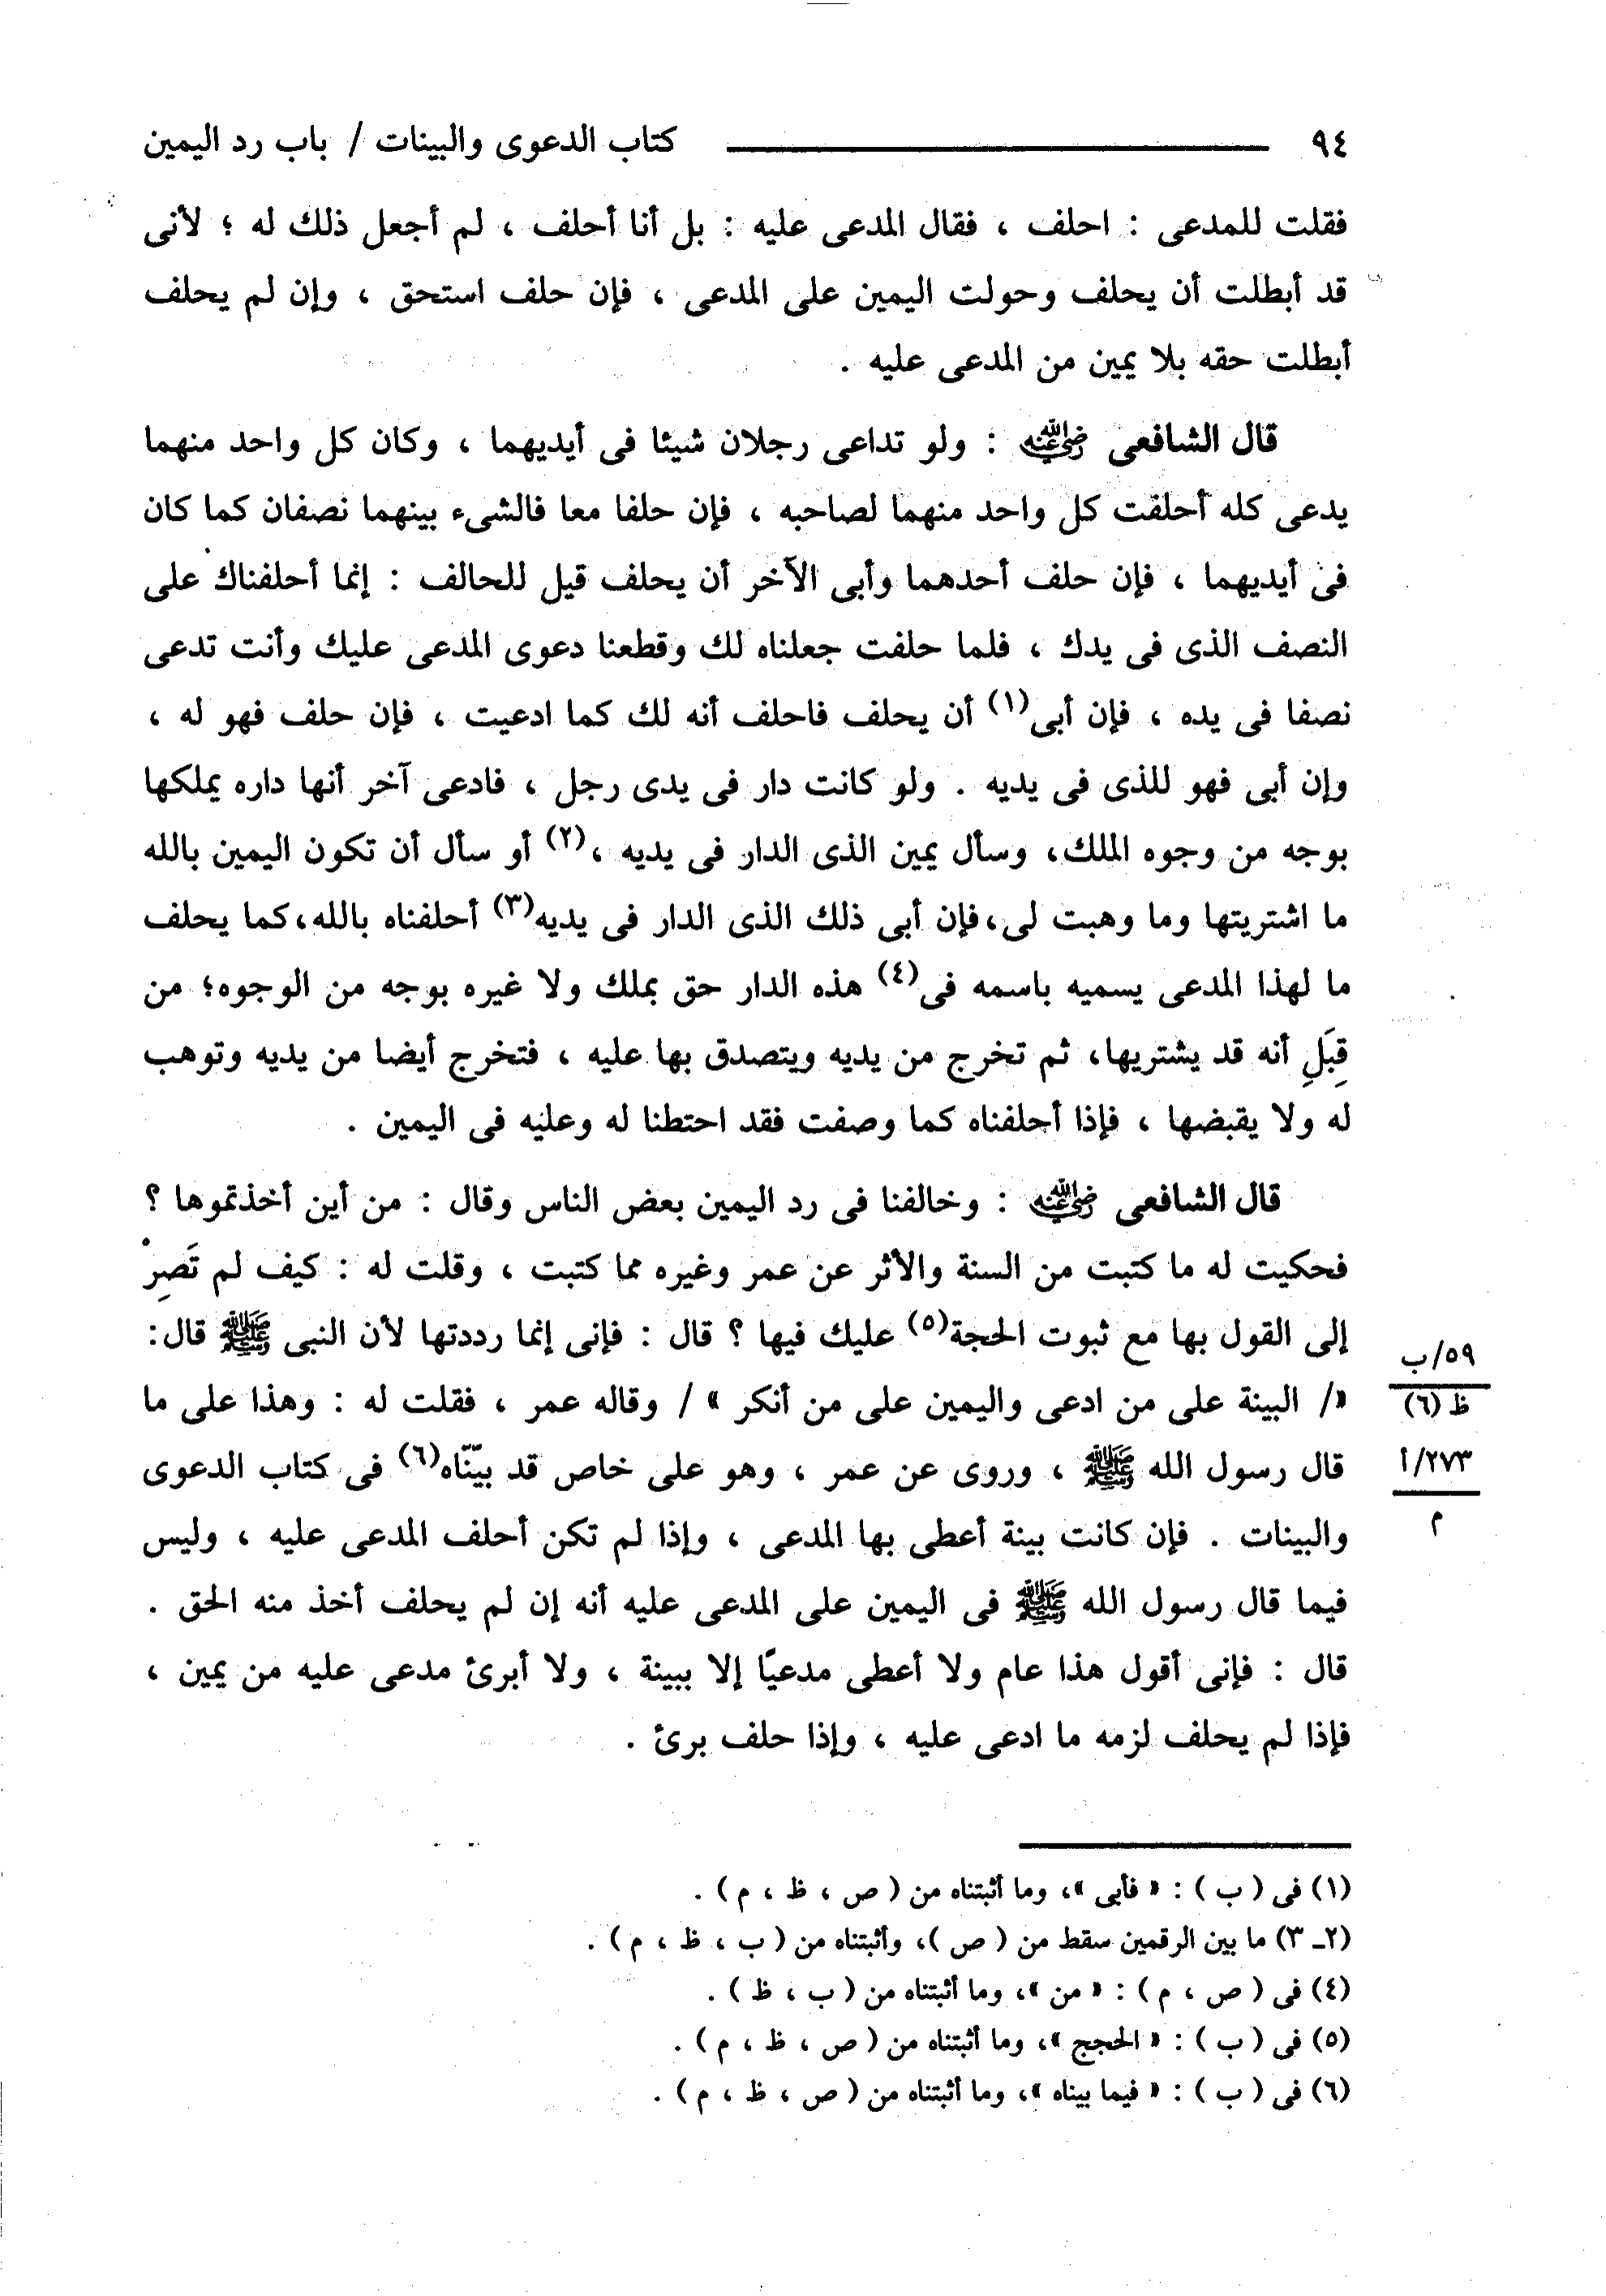 ٩٤ كتاب الدعوى والبينات / باب رد اليمين
فقلت للمدعى : احلف ، فقال المدعى عليه : بل أنا أحلف ، لم أجعل ذلك له ؛ لأنى
قد أبطلت أن يحلف وحولت اليمين على المدعى ، فإن حلف استحق ، وإن لم يحلف
أبطلت حقه بلا يمين من المدعى عليه .
قال الشافعى رضي الله عنه : ولو تداعى رجلان شيئا فى أيديهما ، وكان كل واحد منهما
يدعى كله أحلفت كل واحد منهما لصاحبه ، فإن حلفا معا فالشىء بينهما نصفان كما كان
فى أيديهما ، فإن حلف أحدهما وأبى الآخر أن يحلف قيل للحالف : إنما أحلفناك على
النصف الذى فى يدك ، فلما حلفت جعلناه لك وقطعنا دعوى المدعى عليك وأنت تدعى
نصفا فى يده ، فإن أبى(١) أن يحلف فاحلف أنه لك كما ادعيت ، فإن حلف فهو له ،
وإن أبى فهو للذى فى يديه . ولو كانت دار فى يدى رجل ، فادعى آخر أنها داره يملكها
بوجه من وجوه الملك، وسأل يمين الذى الدار فى يديه ،(٢) أو سأل أن تكون اليمين بالله
ما اشتريتها وما وهبت لى،فإن أبى ذلك الذى الدار فى يديه(٣) أحلفناه بالله،كما يحلف
ما لهذا المدعى يسميه باسمه فى(٤) هذه الدار حق بملك ولا غيره بوجه من الوجوه؛ من
قِبَلِ أنه قد يشتريها، ثم تخرج من يديه ويتصدق بها عليه ، فتخرج أيضا من يديه وتوهب
له ولا يقبضها ، فإذا أحلفناه كما وصفت فقد احتطنا له وعليه فى اليمين .
قال الشافعى رضي الله عنه : وخالفنا فى رد اليمين بعض الناس وقال : من أين أخذتموها ؟
فحكيت له ما كتبت من السنة والأثر عن عمر وغيره مما كتبت ، وقلت له : كيف لم تَصِرْ
إلى القول بها مع ثبوت الحجة(٥) عليك فيها ؟ قال : فإنى إنما رددتها لأن النبى ﷺ قال:
٥٩/ب
ظ (٦)
«/ البينة على من ادعى واليمين على من أنكر » / وقاله عمر ، فقلت له : وهذا على ما
٢٧٣/أ
م
قال رسول الله ﷺ ، وروى عن عمر ، وهو على خاص قد بيّنّاه(٦) فى كتاب الدعوى
والبينات . فإن كانت بينة أعطى بها المدعى ، وإذا لم تكن أحلف المدعى عليه ، وليس
فيما قال رسول الله ﷺ فى اليمين على المدعى عليه أنه إن لم يحلف أخذ منه الحق .
قال : فإنى أقول هذا عام ولا أعطى مدعيًا إلا ببينة ، ولا أبرئ مدعى عليه من يمين ،
فإذا لم يحلف لزمه ما ادعى عليه ، وإذا حلف برئ .
(١) فى ( ب ) : « فأبى »، وما أثبتناه من ( ص ، ظ ، م ) .
(٢ـ ٣) ما بين الرقمين سقط من ( ص )، وأثبتناه من ( ب ، ظ ، م ) .
(٤) فى ( ص ، م ) : « من »، وما أثبتناه من ( ب ، ظ ) .
(٥) فى ( ب ) : « الحجج »، وما أثبتناه من ( ص ، ظ ، م ) .
(٦) فى ( ب ) : « فيما بيناه »، وما أثبتناه من ( ص ، ظ ، م ) .